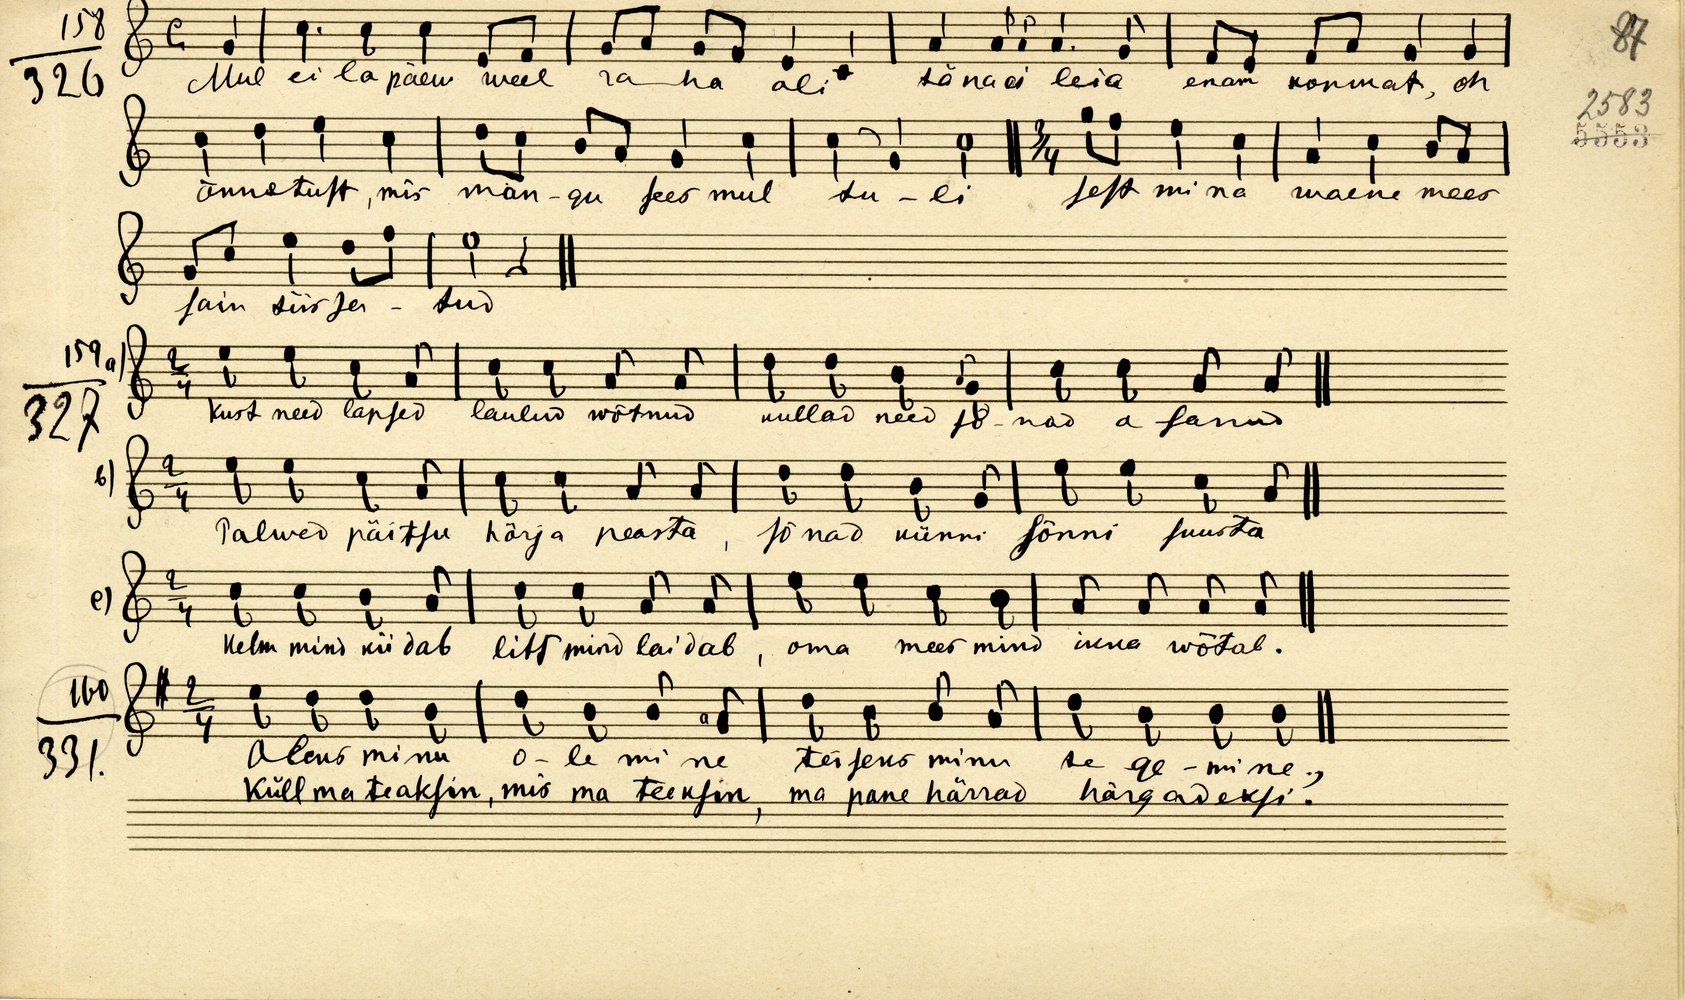 158
326
87
Mul ei la päew weel ra ha oli täna ei leia enam kopmat, oh
2583
5553
õnnetust, mis män-gu sees mul tu-li sest mi na waene mees
sain siis pe-tud
159 a)
327
Kust need lapsed laulud wõtnud kullad need sõ-nad a sanud
b)
Talwed päitsu härja peasta, sõnad künni sõnni suusta
c)
Kelm mind kii dab lits mind lai dab, oma mees mind ikka wõtab.
160
331.
Oleks minu o-le mi ne teiseks minu te ge-mi ne,
Küll ma teaksin, mis ma teeksin, ma pane härrad härgadeksi.